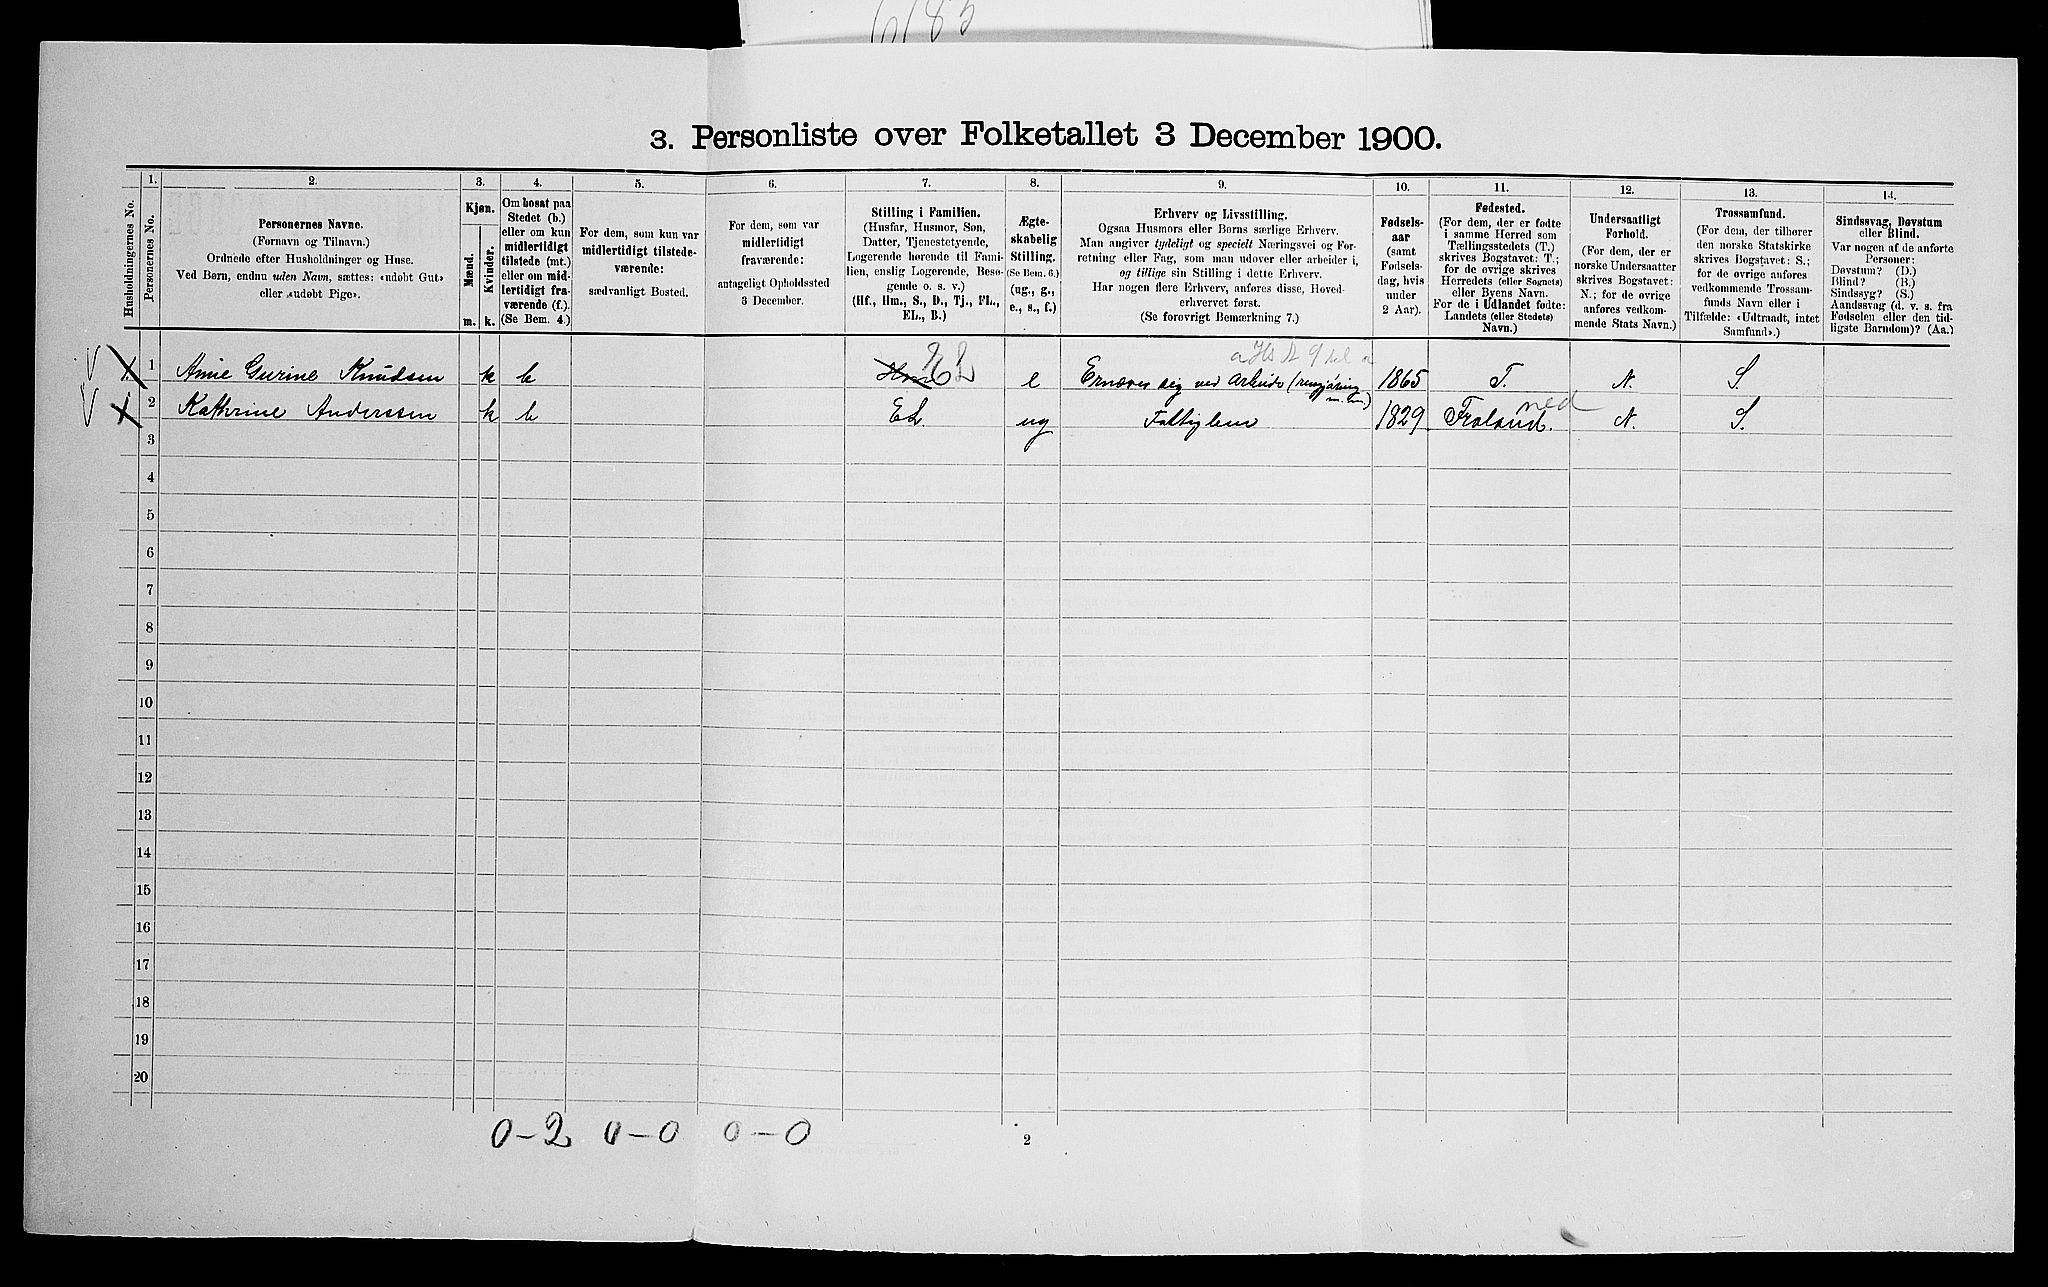 6183
3. Personliste over Folketallet 3 December 1900.
Husholdningernes No.
1.
Personernes No.
2.
Personernes Navne.
(Fornavn og Tilnavn.)
Ordnede efter Husholdninger og Huse.
Ved Børn, endnu uden Navn, sættes: «udøbt Gut»
eller «udøbt Pige».
3.
Kjøn.
Mænd.
Kvinder.
m. k.
4.
Om bosat paa
Stedet (b.)
eller om kun
midlertidigt
tilstede (mt.)
eller om mid-
lertidigt fra-
værende (f.).
(Se Bem. 4.)
5.
For dem, som kun var
midlertidigt tilstede-
værende:
sædvanligt Bosted.
6.
For dem, som var
midlertidigt
fraværende:
antageligt Opholdssted
3 December.
7.
Stilling i Familien.
(Husfar, Husmor, Søn,
Datter, Tjenestetyende,
Logerende hørende til Fami-
lien, enslig Logerende, Besø-
gende o. s. v.)
(Hf., Hm., S., D., Tj., FL.,
EL., B.)
8.
Ægte-
skabelig
Stilling.
(Se Bem. 6.)
(ug., g.,
e., s., f.)
9.
Erhverv og Livsstilling.
Ogsaa Husmors eller Børns særlige Erhverv.
Man angiver tydeligt og specielt Næringsvei og For-
retning eller Fag, som man udover eller arbeider i,
og tillige sin Stilling i dette Erhverv.
Har nogen flere Erhverv, anføres disse, Hoved-
erhvervet først.
(Se forøvrigt Bemærkning 7.)
10.
Fødsels-
aar
(samt
Fødsels-
dag, hvis
under
2 Aar).
11.
Fødested.
(For dem, der er fødte
i samme Herred som
Tællingsstedets (T.)
skrives Bogstavet: T.;
for de øvrige skrives
Herredets (eller Sognets)
eller Byens Navn.
For de i Udlandet fødte:
Landets (eller Stedets)
Navn.)
12.
Undersaatligt
Forhold.
(For dem, der er
norske Undersaatter
skrives Bogstavet:
N.; for de øvrige
anføres vedkom-
mende Stats Navn.)
13.
Trossamfund.
(For dem, der tilhører
den norske Statskirke
skrives Bogstavet: S.;
for de øvrige anføres
vedkommende Trossam-
funds Navn eller i
Tilfælde: «Udtraadt, intet
Samfund».)
14.
Sindssvag, Døvstum
eller Blind.
Var nogen af de anførte
Personer:
Døvstum? (D.)
Blind? (B.)
Sindssyg? (S.)
Aandssvag (d. v. s. fra
Fødselen eller den tid-
ligste Barndom)? (Aa.)
1 Anne Gurine Knudsen k b Hm EL e Ernærer sig ved Arbeide (rengjøring m. m.) 1865 T. N. S.
2 Kathrine Anderssen k b EL. ug Fattiglem 1829 Froland. ned N. S.
3
4
5
6
7
8
9
10
11
12
13
14
15
16
17
18
19
20
0-2 0-0 0-0
2